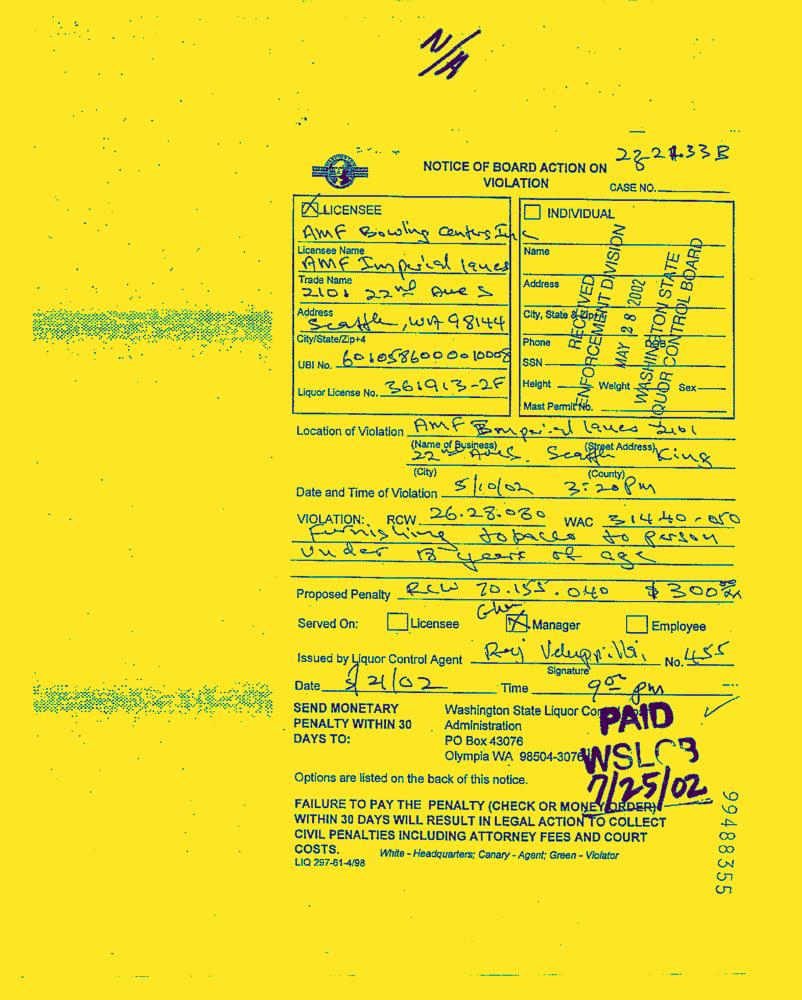 N/A
NOTICE OF BOARD ACTION ON
VIOLATION
CASE NO.
LICENSEE
AMF Bowling Centers Inc
Licensee Name
AMF Imperial lanes
Trade Name
2101 22nd Ave S
Address
Seattle, WA 98144
City/State/Zip+4
UBI No.
Liquor License No. 361913-2F
INDIVIDUAL
Name
Address
City, State & Zip+4
Phone DOB
SSN
Height Weight Sex
Mast Permit No.
RECEIVED
ENFORCEMENT DIVISION
MAY 28 2002
WASHINGTON STATE
LIQUOR CONTROL BOARD
Location of Violation AMF Imperial lanes 2101
(Name of Business) (Street Address)
22nd Ave S. Seattle King
(City) (County)
Date and Time of Violation 5/10/02 3:20 PM
VIOLATION: RCW 26.28.080 WAC 314 40-050
Furnishing tobacco to person
under 18 years of age
Proposed Penalty RCW 70.155.040 $300
Served On: Licensee Manager Employee
Issued by Liquor Control Agent No. 455
Signature
Date 5/21/02 Time 9 pm
SEND MONETARY
PENALTY WITHIN 30
DAYS TO:
Washington State Liquor
Administration
PO Box 43076
Olympia WA 98504-3076
PAID
WSLCB
7/25/02
Options are listed on the back of this notice.
FAILURE TO PAY THE PENALTY (CHECK OR MONEY ORDER)
WITHIN 30 DAYS WILL RESULT IN LEGAL ACTION TO COLLECT
CIVIL PENALTIES INCLUDING ATTORNEY FEES AND COURT
COSTS.
White - Headquarters; Canary - Agent; Green - Violator
LIQ 297-61-4/98
99488355